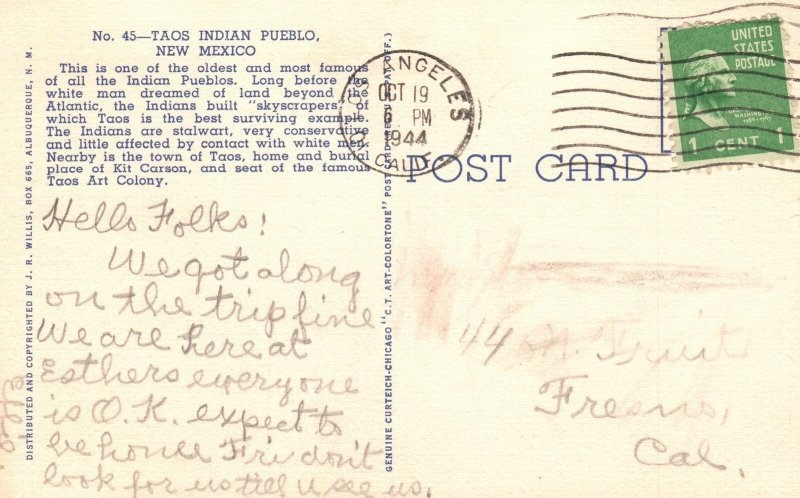 No. 45—TAOS INDIAN PUEBLO,
NEW MEXICO
This is one of the oldest and most famous
of all the Indian Pueblos. Long before the
white man dreamed of land beyond the
Atlantic, the Indians built "skyscrapers" of
which Taos is the best surviving example.
The Indians are stalwart, very conservative
and little affected by contact with white men.
Nearby is the town of Taos, home and burial
place of Kit Carson, and seat of the famous
Taos Art Colony.
Hello Folks!
We got along
on the trip fine
We are here at
Esthers everyone
is O.K. expect to
be home Fri don't
look for us till u see us.
DISTRIBUTED AND COPYRIGHTED BY J. R. WILLIS, BOX 665, ALBUQUERQUE, N. M.
GENUINE CURTEICH-CHICAGO "C.T. ART-COLORTONE" POST CARD (REG. U.S. PAT. OFF.)
LOS ANGELES
OCT 19
6 PM
1944
CALIF.
UNITED
STATES
POSTAGE
GEORGE
WASHINGTON
1 CENT 1
POST CARD
44 N. Fruit
Fresno,
Cal.